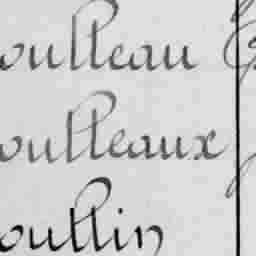 oulleau
oulleaux
oullin